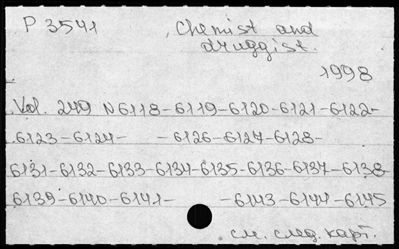 P 3541 Chemist and
druggist.
1998
Vol. 249 N 6118-6119-6120-6121-6122-
6123-6124- -6126-6127-6128-
6131-6132-6133-6134-6135-6136-6137-6138
6139-6140-6141- -6143-6144-6145
см. след. карт.